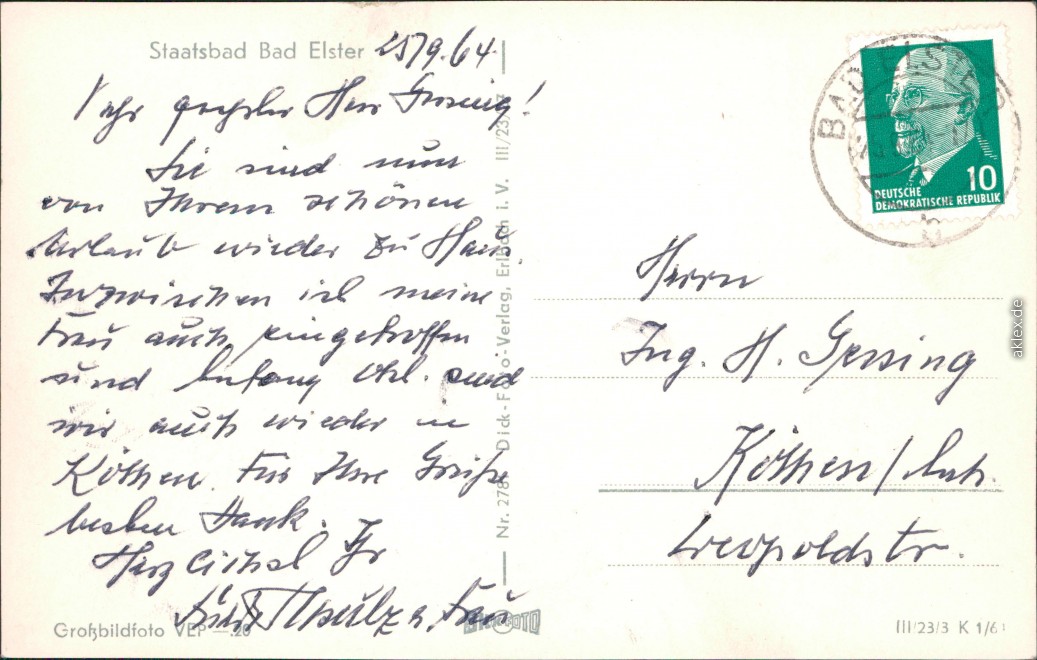 Staatsbad Bad Elster 25/9.64.
Sehr geehrter Herr Gersing!
Sie sind nun
von Ihrem schönen
Urlaub wieder zu Haus.
Inzwischen ist meine
Frau auch eingetroffen
und Anfang Okt. sind
wir auch wieder in
Köthen. Für Ihre Grüße
besten Dank.
Herzlichst Ihr
Schulze u. Frau
Großbildfoto VEP —.20
Nr. 278 Dick-Foto-Verlag, Erlbach i. V. III/23/
DICK FOTO
BAD ELSTER
b
DEUTSCHE
DEMOKRATISCHE REPUBLIK
10
Herrn
Ing. H. Gersing
Köthen/Anh.
Leopoldstr.
III/23/3 K 1/6
aklex.de